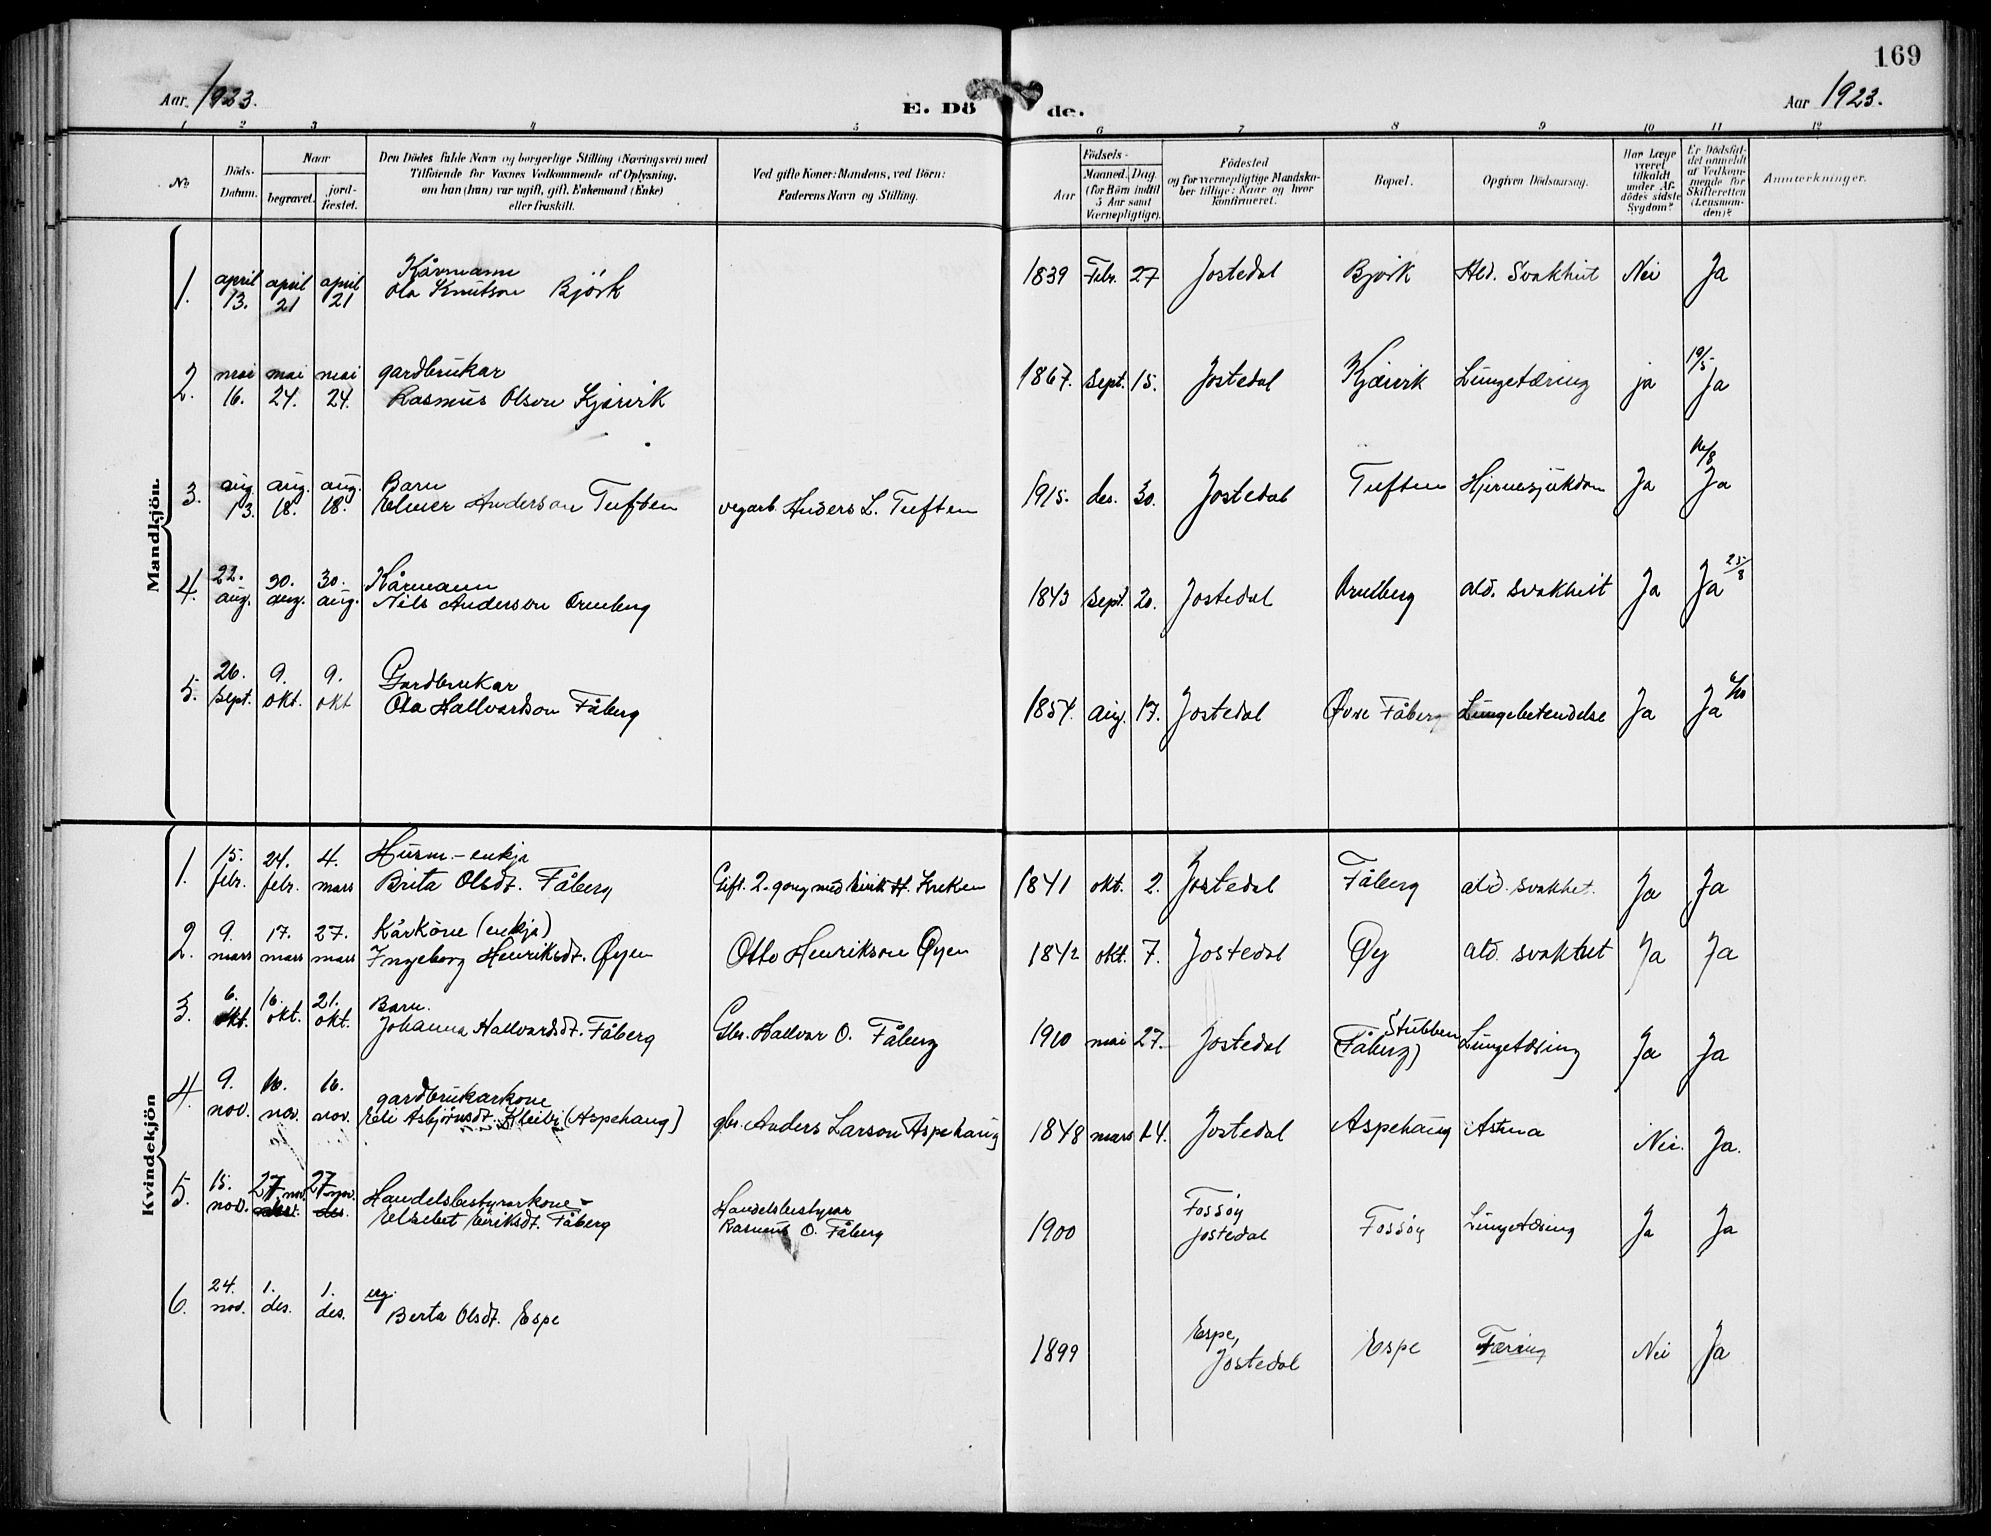 169
Aar 1923.
E. Dö de.
Aar 1923.
1 2 3 4 5 6 7 8 9 10 11 12
No.
Döds-Datum.
Naar
begravet.
jord-fæstet.
Den Dödes fulde Navn og borgerlige Stilling (Næringsvei) med
Tilföiende for Voxnes Vedkommende af Oplysning,
om han (hun) var ugift, gift, Enkemand (Enke)
eller fraskilt.
Ved gifte Koner: Mandens, ved Börn:
Faderens Navn og Stilling.
Födsels-
Aar
Maaned. Dag.
(for Börn indtil
5 Aar samt
Værnepligtige).
Födested
og for værnepligtige Mandska-
ber tillige: Naar og hvor
konfirmeret.
Bopæl.
Opgiven Dödsaarsag.
Har Læge
været
tilkaldt
under Af-
dödes sidste
Sygdom?
Er Dödsfal-
det anmeldt
af Vedkom-
mende for
Skifteretten
(Lensman-
den)?
Anmærkninger.
Mandkjön.
1. april 13. april 21 april 21 Kårmann
Ola Knutson Björk 1839 Febr. 27 Jostedal Björk Ald. Svakheit Nei Ja
2. mai 16. mai 24. mai 24. gardbrukar
Rasmus Olson Kjærvik 1867. Sept. 15. Jostedal Kjærvik Lungetæring ja 19/5 Ja
3. aug. 13. aug. 18. aug. 18. Barn
Elmer Anderson Tuften vegarb. Anders L. Tuften 1915. des. 30. Jostedal Tuften Hjernesjukdom Ja 16/8 Ja
4. 22. aug. 30. aug. 30. aug. Kårmann
Nils Anderson Ormberg 1843 Sept. 20. Jostedal Ormberg ald. svakheit Ja Ja 25/8
5. 26. Sept. 9. okt. 9. okt Gardbrukar
Ola Hallvardson Fåberg 1854. aug. 17. Jostedal Øvre Fåberg Lungebetendelse Ja Ja
Kvindekjön
1. 15. febr. 24. febr. 4. mars Husm.-enkja
Brita Olsdt. Fåberg Gift. 2. gong med Eirik H. Kreken 1841 okt. 2. Jostedal Fåberg ald. svakhet. Ja Ja
2. 9. mars 17. mars 27. mars Kårkone (enkja)
Ingeborg Henriksdt. Øyen Otto Henrikson Øyen 1842 okt. 7. Jostedal Øy ald. svakhet Ja Ja
3. 6. okt. 16. okt. 21. okt. Barn.
Johanna Hallvardsdt. Fåberg Gbr. Hallvar O. Fåberg 1910 mai 27. Jostedal Stubben (Fåberg) Lungetæring Ja Ja
4. 9. nov. 16. nov. 16. nov. gardbrukarkone
Eli Asbjørnsdt. Kleibi (Aspehaug) gbr. Anders Larson Aspehaug 1848 mars 14. Jostedal Aspehaug Astma Nei. Ja.
5. 15. nov. 27. nov. 27. nov. des. Handelsbestyrarkone
Elsebet Eiriksdt. Fåberg Handelsbestyrar
Rasmus O. Fåberg 1900 Fossøy
Jostedal Fossøy Lungetæring Ja Ja
6. 24. nov. 1. des. 1. des. ug.
Berta Olsdt. Espe 1899 Espe,
Jostedal Espe Tæring Nei Ja